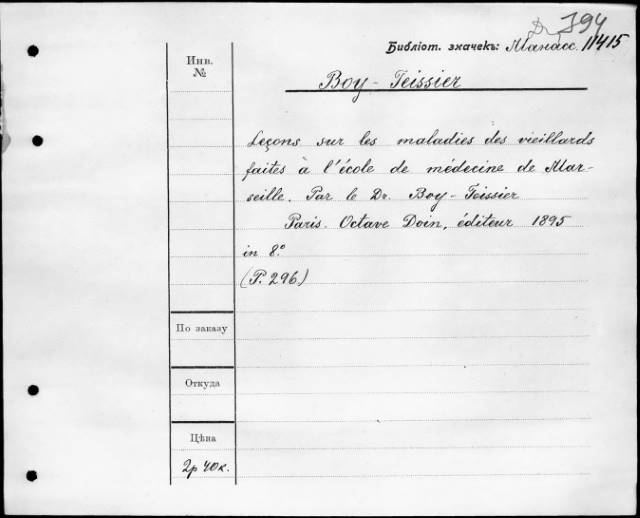 D 394
Библіот. значекъ: Манасс. 11415
Инв.
№
Boy-Teissier
Leçons sur les maladies des vieillards
faites à l'école de médecine de Mar-
seille. Par le Dr. Boy-Teissier
Paris. Octave Doin, éditeur 1895
in 8.°
(P. 296)
По заказу
Откуда
Цѣна
2р 40к.